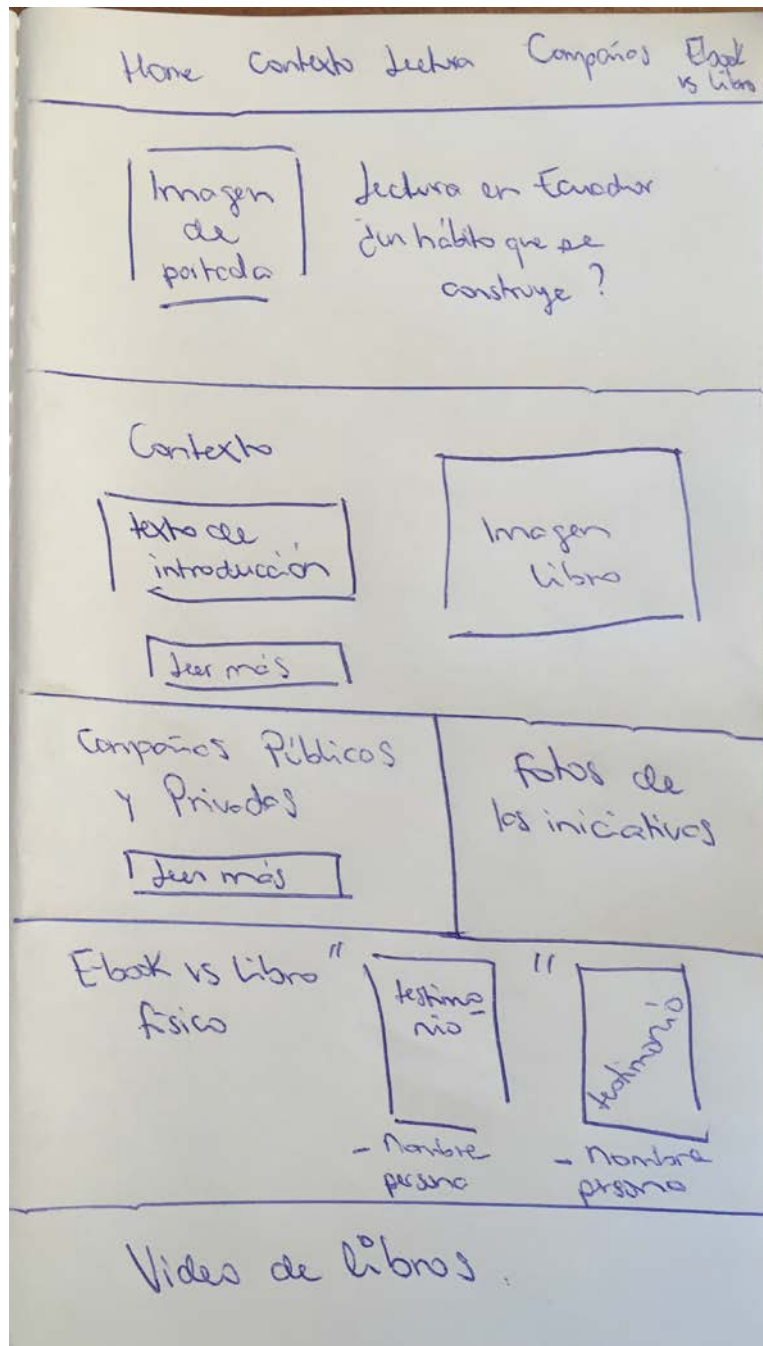 Home Contexto Lectura Campañas Ebook
vs Libro
Imagen
de
portada
Lectura en Ecuador
¿un hábito que se
construye?
Contexto
texto de
introducción
Leer más
Imagen
Libro
Campañas Públicas
y Privadas
Leer más
Fotos de
las iniciativas
E-book vs Libro
físico
"
testimo
nio
- Nombre
persona
"
testimonio
- nombre
persona
Video de libros.